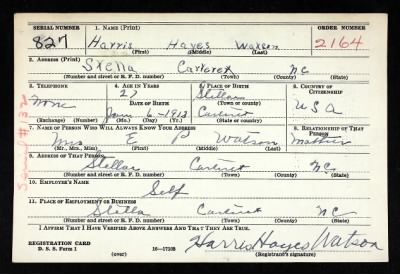 SERIAL NUMBER 1. NAME (Print) ORDER NUMBER
827 Harris Hayes Watson 2164
(First) (Middle) (Last)
2. ADDRESS (Print)
Stella Carteret NC
(Number and street or R. F. D. number) (Town) (County) (State)
3. TELEPHONE 4. AGE IN YEARS 5. PLACE OF BIRTH 6. COUNTRY OF CITIZENSHIP
None 27 Stella
DATE OF BIRTH (Town or county)
Jan 6 - 1913 Carteret USA
(Exchange) (Number) (Mo.) (Day) (Yr.) (State or country)
7. NAME OF PERSON WHO WILL ALWAYS KNOW YOUR ADDRESS 8. RELATIONSHIP OF THAT PERSON
Mrs E P Watson Mother
(Mr., Mrs., Miss) (First) (Middle) (Last)
9. ADDRESS OF THAT PERSON
Stella Carteret NC
(Number and street or R. F. D. number) (Town) (County) (State)
10. EMPLOYER'S NAME
Self
11. PLACE OF EMPLOYMENT OR BUSINESS
Stella Carteret NC
(Number and street or R. F. D. number) (Town) (County) (State)
I AFFIRM THAT I HAVE VERIFIED ABOVE ANSWERS AND THAT THEY ARE TRUE.
REGISTRATION CARD
D. S. S. Form 1 (over) 16—17105 Harris Hayes Watson
(Registrant's signature)